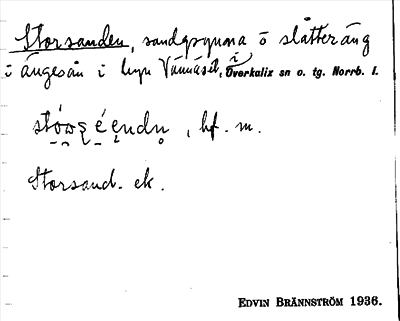 Storsanden, sandgrynna o slåtteräng
i Ängesån i byn Vännäset, i Överkalix sn o. tg. Norrb. l.
, bf. m.
Storsand. ek.
EDVIN BRÄNNSTRÖM 1936.